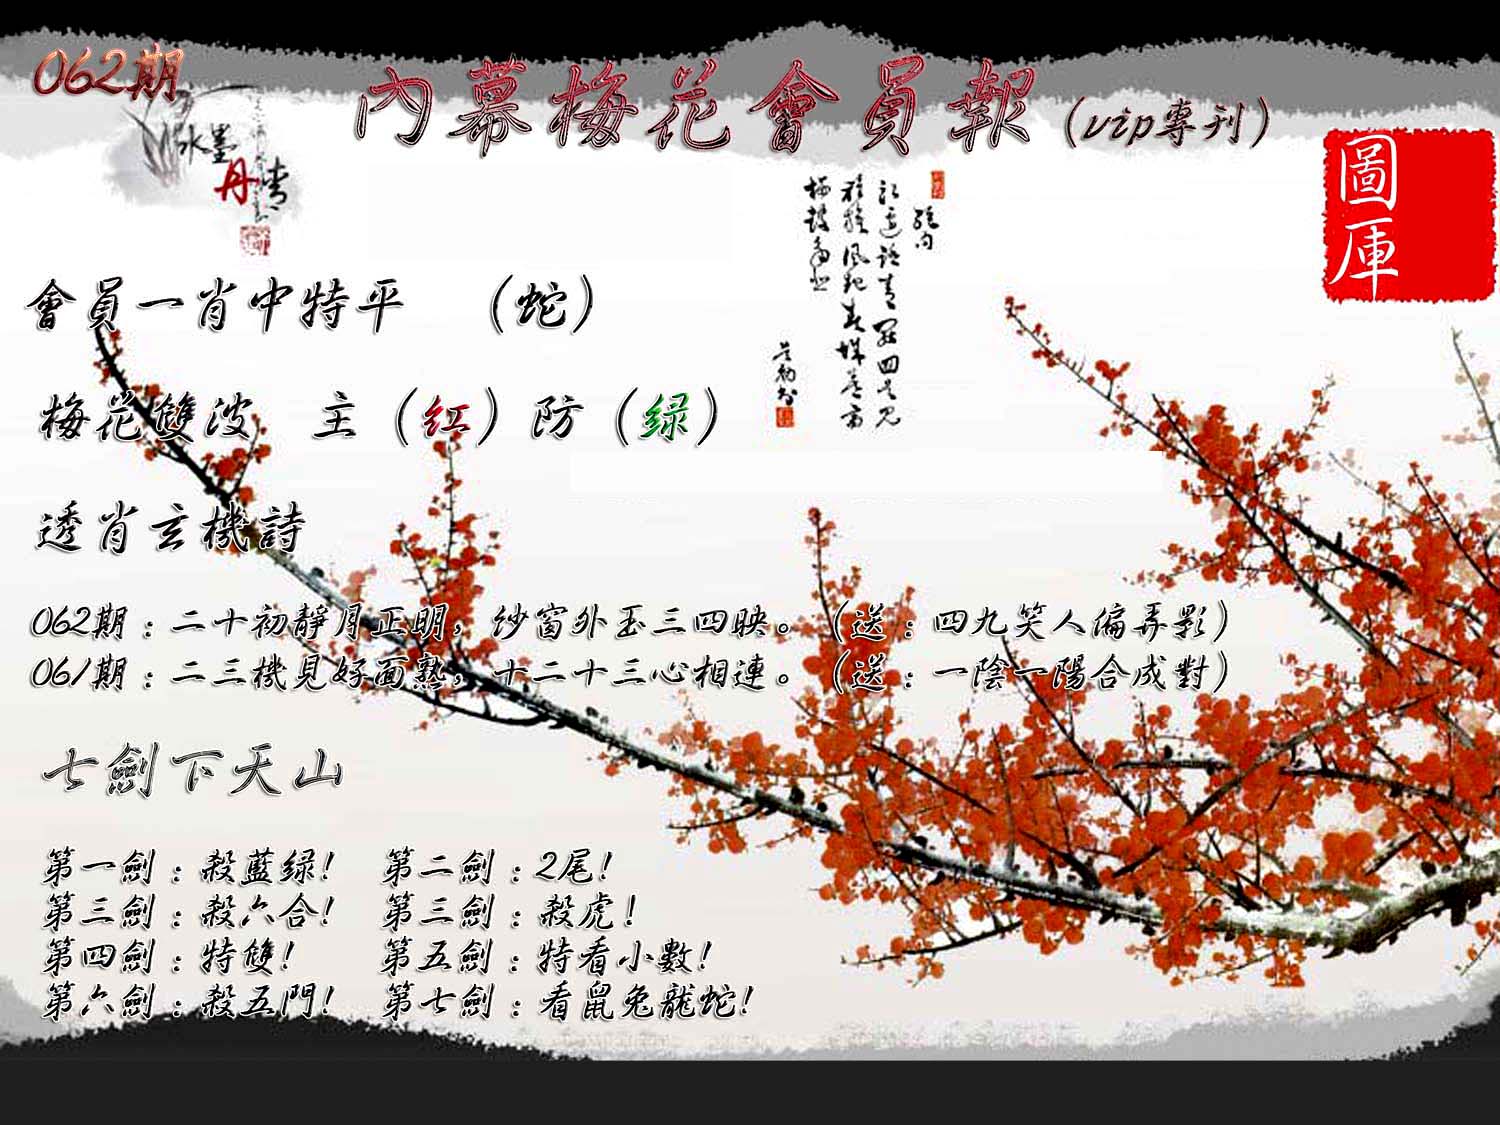 062期
內幕梅花會員報(vip專刊)
水墨
丹青
圖
庫
會員一肖中特平 (蛇)
梅花雙波 主(红)防(绿)
透肖玄機詩
062期:二十初靜月正明,纱窗外玉三四映。(送:四九笑人偏弄影)
061期:二三機見好面熟,十二十三心相連。(送:一陰一陽合成對)
七劍下天山
第一劍:殺藍绿! 第二劍:2尾!
第三劍:殺六合! 第三劍:殺虎!
第四劍:特雙! 第五劍:特看小數!
第六劍:殺五門! 第七劍:看鼠兔龍蛇!